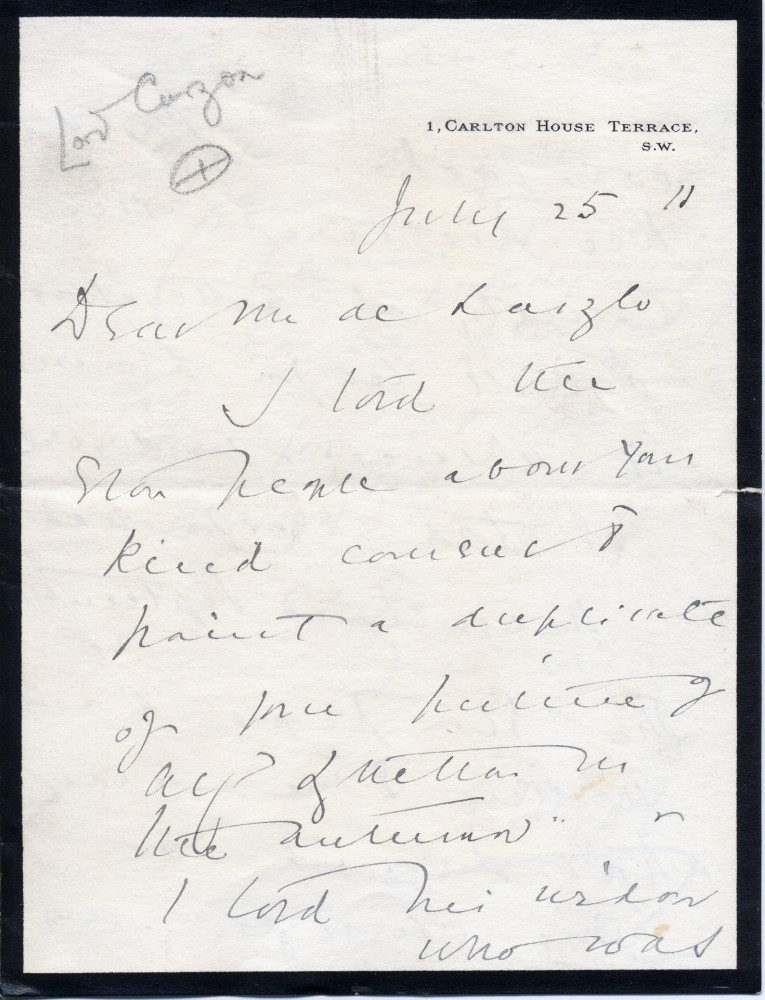 Lord Curzon
1, CARLTON HOUSE TERRACE,
S.W.
July 25 11
Dear Mr de Laszlo
I told the
Eton people about your
kind consent to
paint a duplicate
of your picture of
Quetta in
the autumn
I told his widow
who was